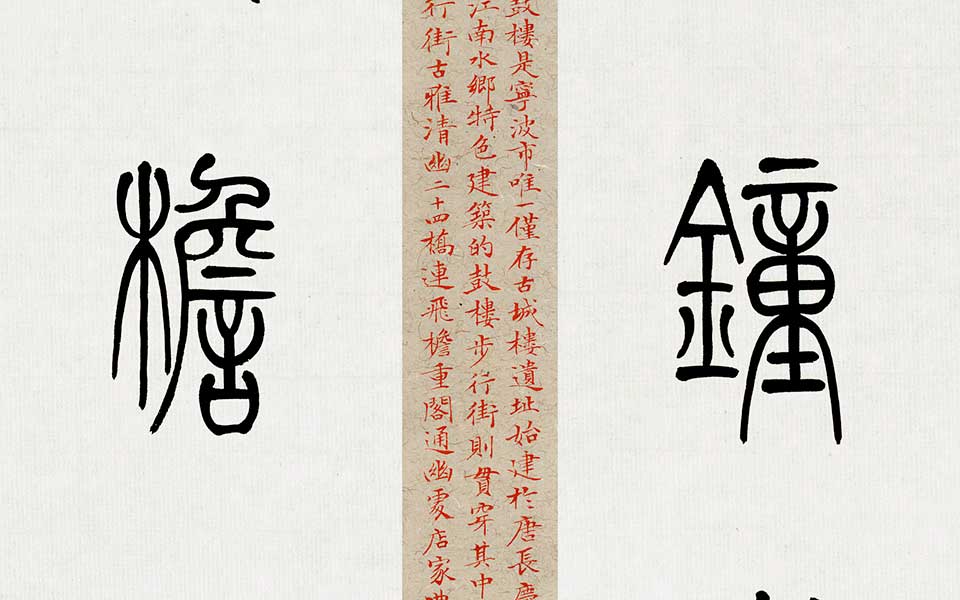 鐘
鼓樓是寧波市唯一僅存古城樓遺址始建於唐長慶
江南水鄉特色建築的鼓樓步行街則貫穿其中
行街古雅清幽二十四橋連飛檐重閣通幽處店家
檐